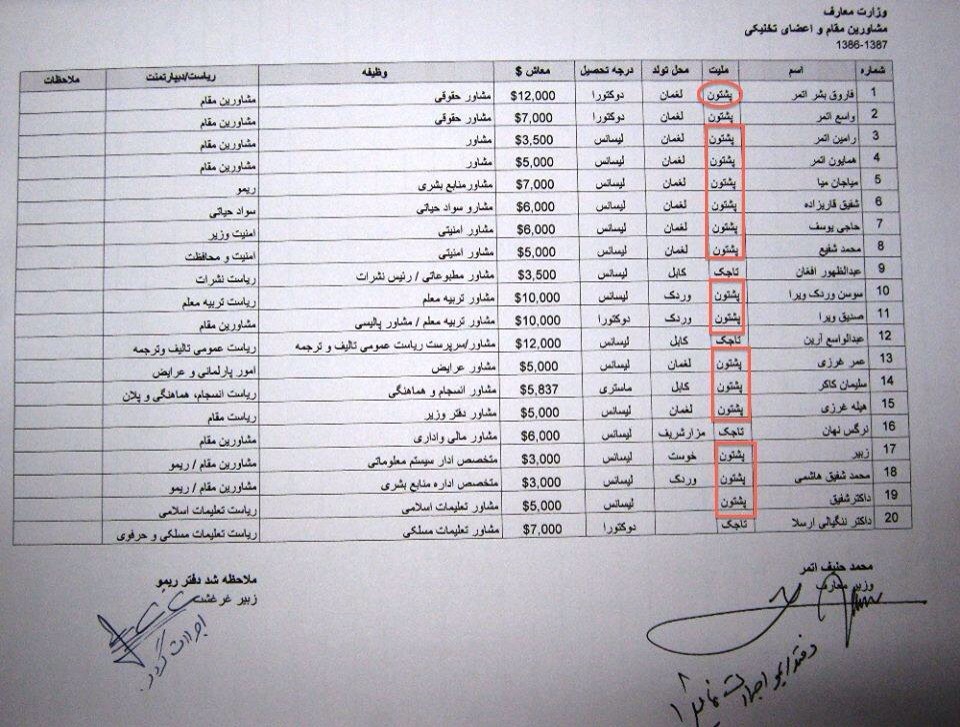 وزارت معارف
مشاورین مقام و اعضای تخنیکی
1386-1387
شماره اسم ملیت محل تولد درجه تحصیل معاش $ وظیفه ریاست/دیپارتمنت ملاحظات
1 فاروق بشر اتمر پشتون لغمان دوکتورا $12,000 مشاور حقوقی مشاورین مقام
2 واسع اتمر پشتون لغمان دوکتورا $7,000 مشاور حقوقی مشاورین مقام
3 رامین اتمر پشتون لغمان لیسانس $3,500 مشاور مشاورین مقام
4 همایون اتمر پشتون لغمان لیسانس $5,000 مشاور مشاورین مقام
5 میاجان میا پشتون لغمان لیسانس $7,000 مشاورمنابع بشری ریمو
6 شفیق قاریزاده پشتون لغمان لیسانس $6,000 مشارو سواد حیاتی سواد حیاتی
7 حاجی یوسف پشتون لغمان لیسانس $6,000 مشاور امنیتی امنیت وزیر
8 محمد شفیع پشتون لغمان لیسانس $5,000 مشاور امنیتی امنیت و محافظت
9 عبدالظهور افغان تاجک کابل لیسانس $3,500 مشاور مطبوعاتی / رئیس نشرات ریاست نشرات
10 سوسن وردک ویرا پشتون وردک لیسانس $10,000 مشاور تربیه معلم ریاست تربیه معلم
11 صدیق ویرا پشتون وردک دوکتورا $10,000 مشاور تربیه معلم / مشاور پالیسی مشاورین مقام
12 عبدالواسع آرین تاجک کابل لیسانس $12,000 مشاور/سرپرست ریاست عمومی تالیف و ترجمه ریاست عمومی تالیف وترجمه
13 عمر غرزی پشتون لغمان لیسانس $5,000 مشاور عرایض امور پارلمانی و عرایض
14 سلیمان کاکر پشتون کابل ماستری $5,837 مشاور انسجام و هماهنگی ریاست انسجام، هماهنگی و پلان
15 هیله غرزی پشتون لغمان لیسانس $5,000 مشاور دفتر وزیر ریاست مقام
16 نرگس نهان تاجک مزارشریف لیسانس $6,000 مشاور مالی واداری مشاورین مقام
17 زبیر پشتون خوست لیسانس $3,000 متخصص ادار سیستم معلوماتی مشاورین مقام / ریمو
18 محمد شفیق هاشمی پشتون وردک لیسانس $3,000 متخصص اداره منابع بشری مشاورین مقام / ریمو
19 داکترشفیق پشتون لیسانس $5,000 مشاور تعلیمات اسلامی ریاست تعلیمات اسلامی
20 داکتر ننگیالی ارسلا تاجک دوکتورا $7,000 مشاور تعلیمات مسلکی ریاست تعلیمات مسلکی و حرفوی
محمد حنیف اتمر
وزیر معارف
ملاحظه شد دفتر ریمو
زبیر غرغشت